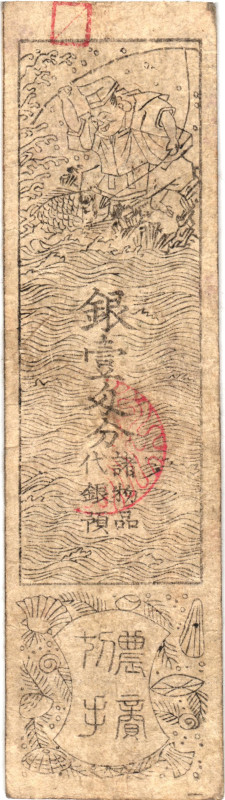 銀壹匁分
諸物品
代銀預
農商
切手